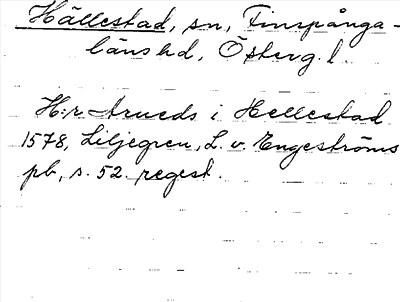 Hällestad, sn, Finspånga-
läns hd, Österg. l.
H:r Arueds i Hellestad
1578, Liljegren, L. v. Engeströms
pb, s. 52. regest.